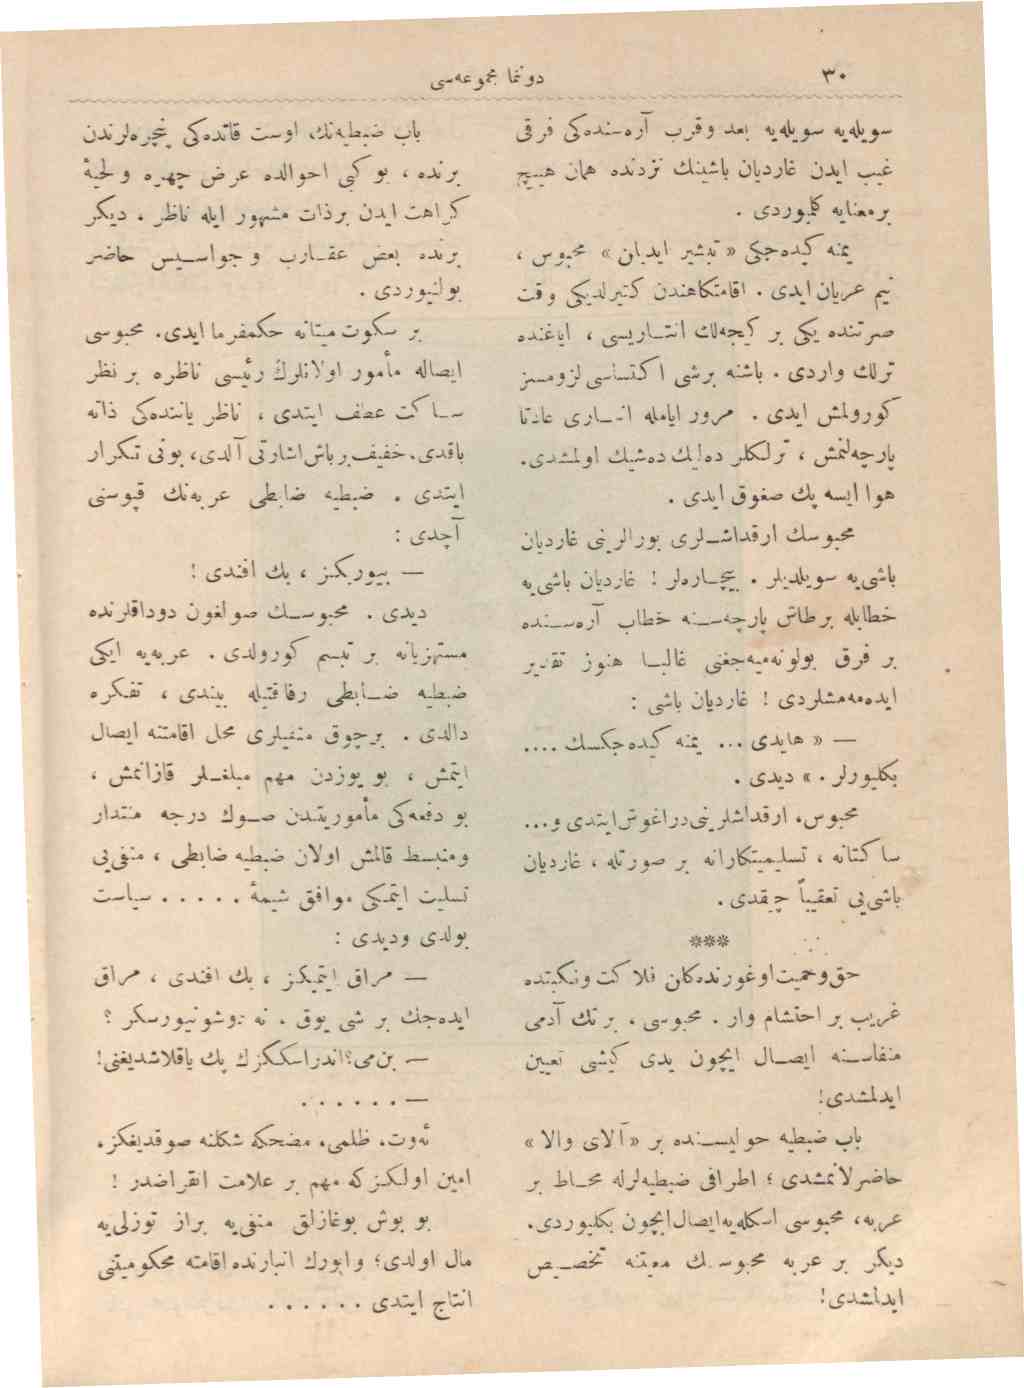 ٣٠
دونما مجموعه‌سی
سویله‌یه سویله‌یه بعد وقرب آره‌سنده‌کی فرقی
غیب ایدن غاردیان باشینك نزدنده همان هیچ
برمعنایه کلیوردی .
یمنه کیده‌جکی « تبشیر ایدیلن » محبوس ،
نیم عریان ایدی . اقامتکاهندن کتیرلدیکی وقت
صرتنده یکی بر کیجه‌لك انتاریسی ، ایاغنده
ترلك واردی . باشنه برشی اکتساسی لزومسز
کورولمش ایدی . مرور ایامله انتاری عادتا
پارچه‌لنمش ، ترلکلر ده‌لیك ده‌شیك اولمشدی.
هوا ایسه پك صغوق ایدی .
محبوسك ارقداشلری بورالرینی غاردیان
باشی‌یه سویلدیلر . بیچاره‌لر ! غاردیان باشی‌یه
خطابله برطاش پارچه‌سنه خطاب آره‌سنده
بر فرق بولونه‌میه‌جغنی غالبا هنوز تقدیر
ایده‌مه‌مشلردی ! غاردیان باشی :
— « هایدی ... یمنه کیده‌جکسك ....
بکلیورلر . » دیدی .
محبوس، ارقداشلرینی دراغوش ایتدی و...
ساکتانه ، تسلیمیتکارانه بر صورتله ، غاردیان
باشی‌یی تعقیباً چیقدی .
***
حق وحمیت اوغورنده‌کان فلاکت ونکبتده
غریب بر احتشام وار . محبوسی ، برتك آدمی
منفاسنه ایصال ایچون یدی کیشی تعیین
ایدلمشدی!
باب ضبطیه حوالیسنده بر « آلای والا »
حاضرلانمشدی ؛ اطرافی ضبطیه‌لرله محاط بر
عربه، محبوسی اسکله‌یه ایصال ایچون بکلیوردی.
دیکر بر عربه محبوسك معیتنه تخصیص
ایدلمشدی!
باب ضبطیه‌نك، اوست قاتده‌کی پنچره‌لرندن
برنده ، بو کبی احوالده عرض چهره ولحیهٔ
کراهت ایدن برذات مشهور ایله ناظر ، دیکر
برنده بعض عقارب وجواسیس حاضر
بولنیوردی .
بر سکوت میتانه حکمفرما ایدی. محبوسی
ایصاله مأمور اولانلرك رئیسی ناظره بر نظر
ساکت عطف ایتدی ، ناظر یاننده‌کی ذاته
باقدی. خفیف برباش اشارتی آلدی، بونی تکرار
ایتدی . ضبطیه ضابطی عربه‌نك قپوسنی
آچدی :
— بیوریکز ، بك افندی !
دیدی . محبوسك صولغون دوداقلرنده
مستهزیانه بر تبسم کورولدی . عربه‌یه ایکی
ضبطیه ضابطی رفاقتیله بیندی ، تفکره
دالدی . برچوق منفیلری محل اقامتنه ایصال
ایتمش ، بو یوزدن مهم مبلغلر قازانمش ،
بو دفعه‌کی مأموریتدن صوك درجه منتدار
ومنبسط قالمش اولان ضبطیه ضابطی ، منفی‌یی
تسلیت ایتمکی موافق شیمهٔ ..... سیاست
بولدی ودیدی :
— مراق ایتمیکز ، بك افندی ، مراق
ایده‌جك بر شی یوق . نه دوشونیورسکز ؟
— بن‌می؟ اندراسکزك پك یاقلاشدیغنی!
— ......
ئه‌وت، ظلمی، مضحکه شکلنه صوقدیغکز،
امین اولکز که مهم بر علامت انقراضدر !
بو بوش بوغازلق منفی‌یه براز توزلی‌یه
مال اولدی؛ واپورك انبارنده اقامته محکومیتنی
انتاج ایتدی ......